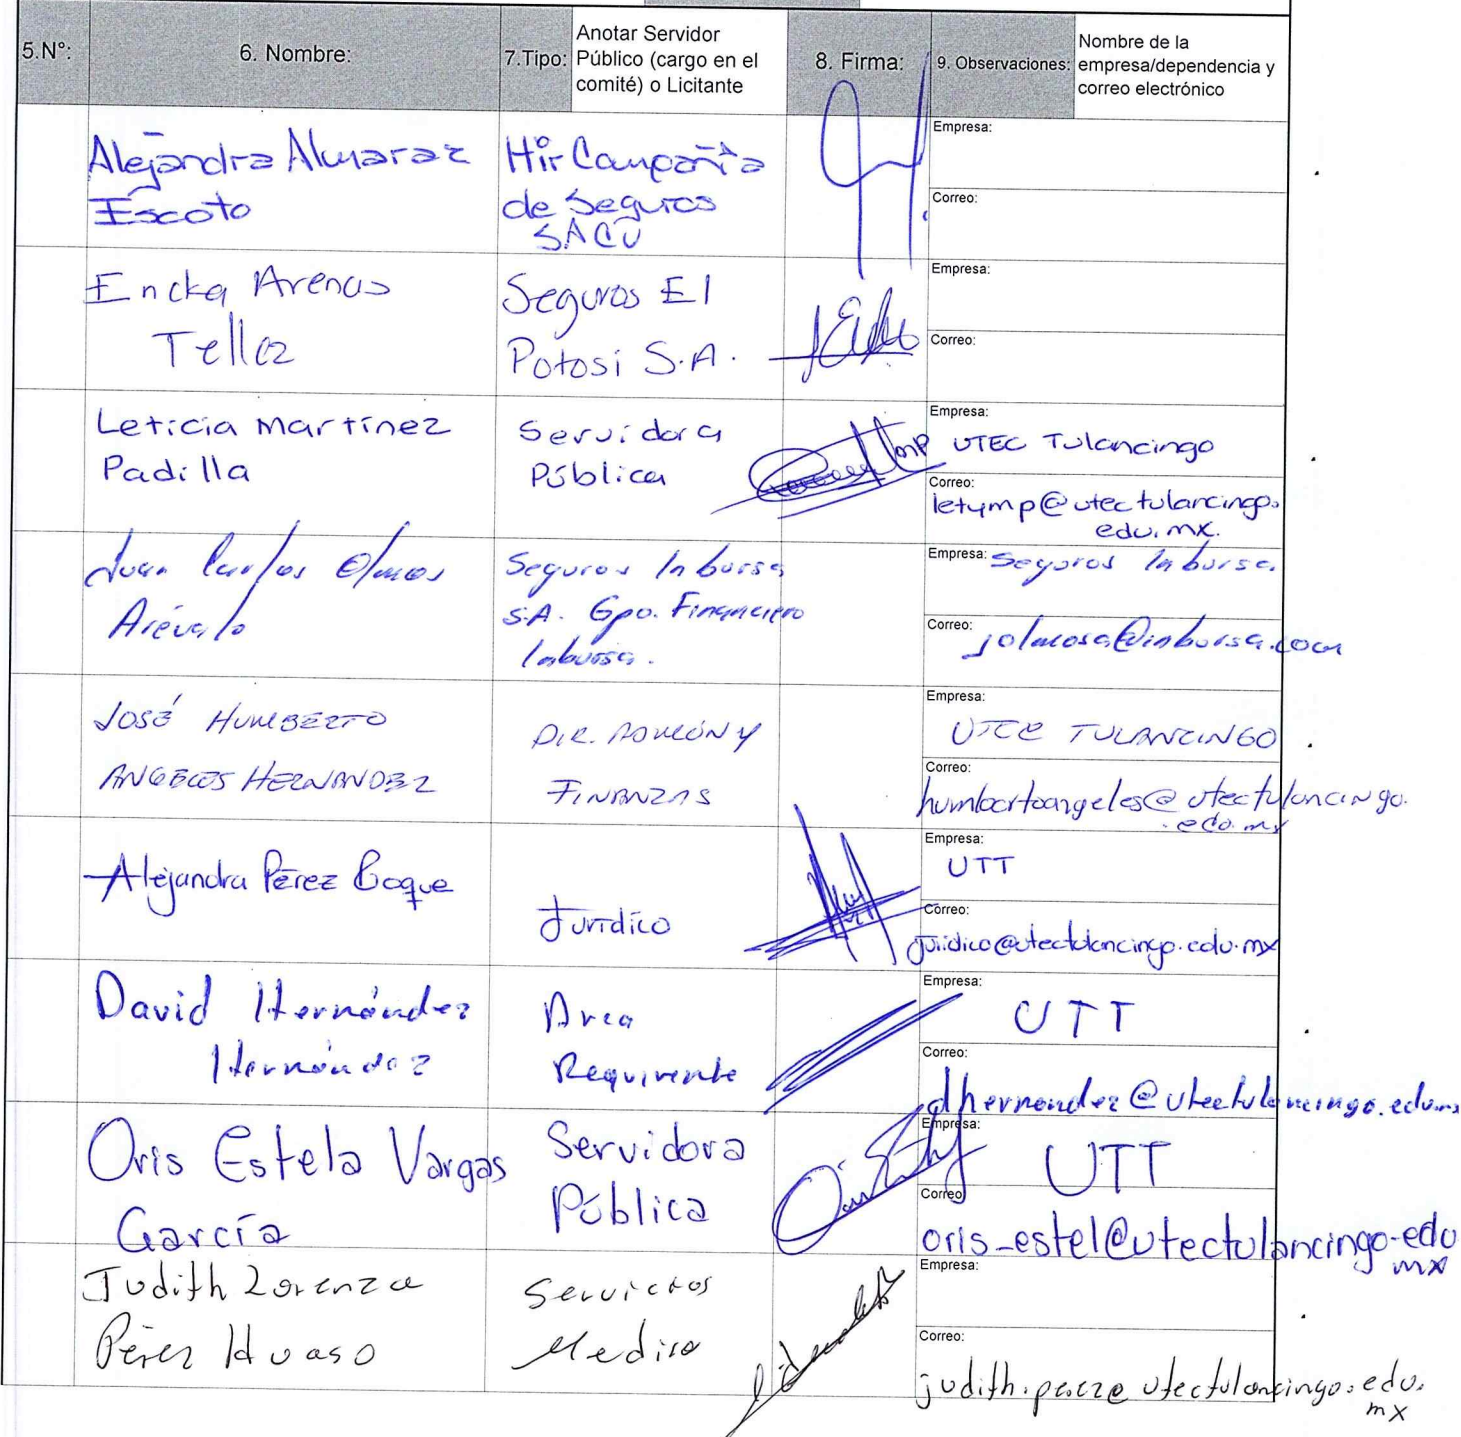 5.N°:
6. Nombre:
7.Tipo:
Anotar Servidor
Público (cargo en el
comité) o Licitante
8. Firma:
9. Observaciones:
Nombre de la
empresa/dependencia y
correo electrónico
Alejandra Almaraz
Escoto
Hir Compañía
de Seguros
SACV
Empresa:
Correo:
Ericka Arenas
Tellez
Seguros El
Potosí S.A.
Empresa:
Correo:
Leticia Martínez
Padilla
Servidora
Pública
Empresa:
UTEC Tulancingo
Correo:
letymp@utectulancingo.
edu.mx.
Juan Carlos Olmos
Arévalo
Seguros Inbursa
S.A. Gpo. Financiero
Inbursa.
Empresa: Seguros Inbursa.
Correo: jolmosa@inbursa.com
JOSÉ HUMBERTO
ANGELES HERNANDEZ
DIR. ADMCÓN Y
FINANZAS
Empresa:
UTEC TULANCINGO
Correo:
humbertoangeles@utectulancingo.
.edu.mx
Alejandra Pérez
Jurídico
Empresa:
UTT
Correo:
juridico@utectulancingo.edu.mx
David Hernández
Hernández
Area
Requirente
Empresa:
UTT
Correo:
dhernandez@utectulancingo.edu.mx
Oris Estela Vargas
García
Servidora
Pública
Empresa:
UTT
Correo:
oris_estel@utectulancingo.edu
mx
Judith Lorenza
Pérez Huaso
Servicios
Medico
Empresa:
Correo:
judith.perez@utectulancingo.edu.
mx